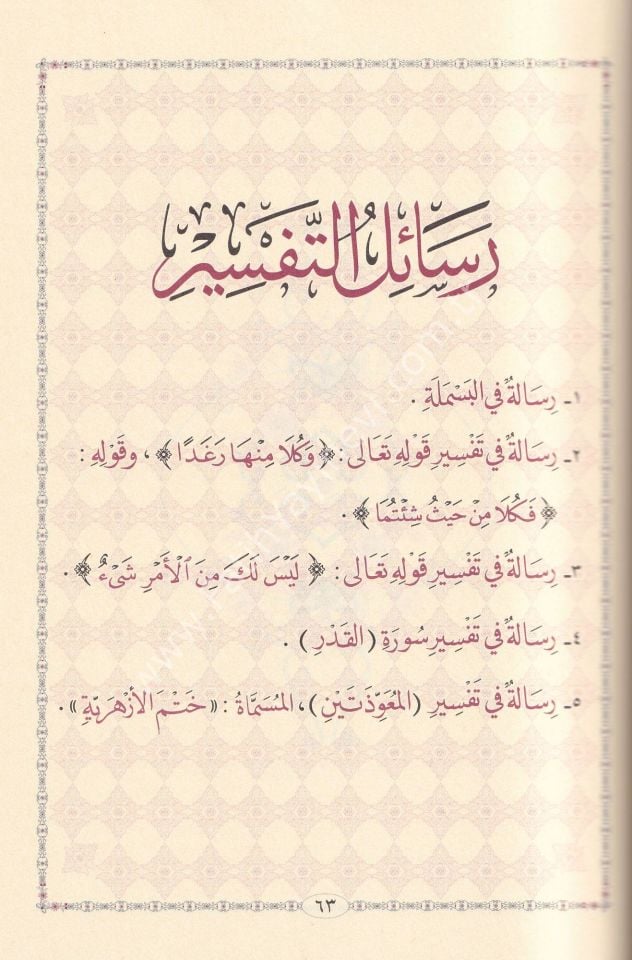 رَسَائِلُ التَّفْسِيرِ
١ـ رِسَالَةٌ فِي البَسْمَلَةِ .
٢ـ رِسَالَةٌ فِي تَفْسِيرِ قَوْلِهِ تَعَالَى : ﴿ وَكُلَا مِنْهَا رَغَدًا ﴾ ، وقَوْلِهِ :
﴿ فَكُلَا مِنْ حَيْثُ شِئْتُمَا ﴾ .
٣ـ رِسَالَةٌ فِي تَفْسِيرِ قَوْلِهِ تَعَالَى : ﴿ لَيْسَ لَكَ مِنَ ٱلْأَمْرِ شَىْءٌ ﴾ .
٤ـ رِسَالَةٌ فِي تَفْسِيرِ سُورَةِ (القَدْرِ) .
٥ـ رِسَالَةٌ فِي تَفْسِيرِ (المُعَوِّذَتَيْنِ)، المُسَمَّاةُ : «خَتْمَ الأَزْهَرِيَّةِ» .
٦٣